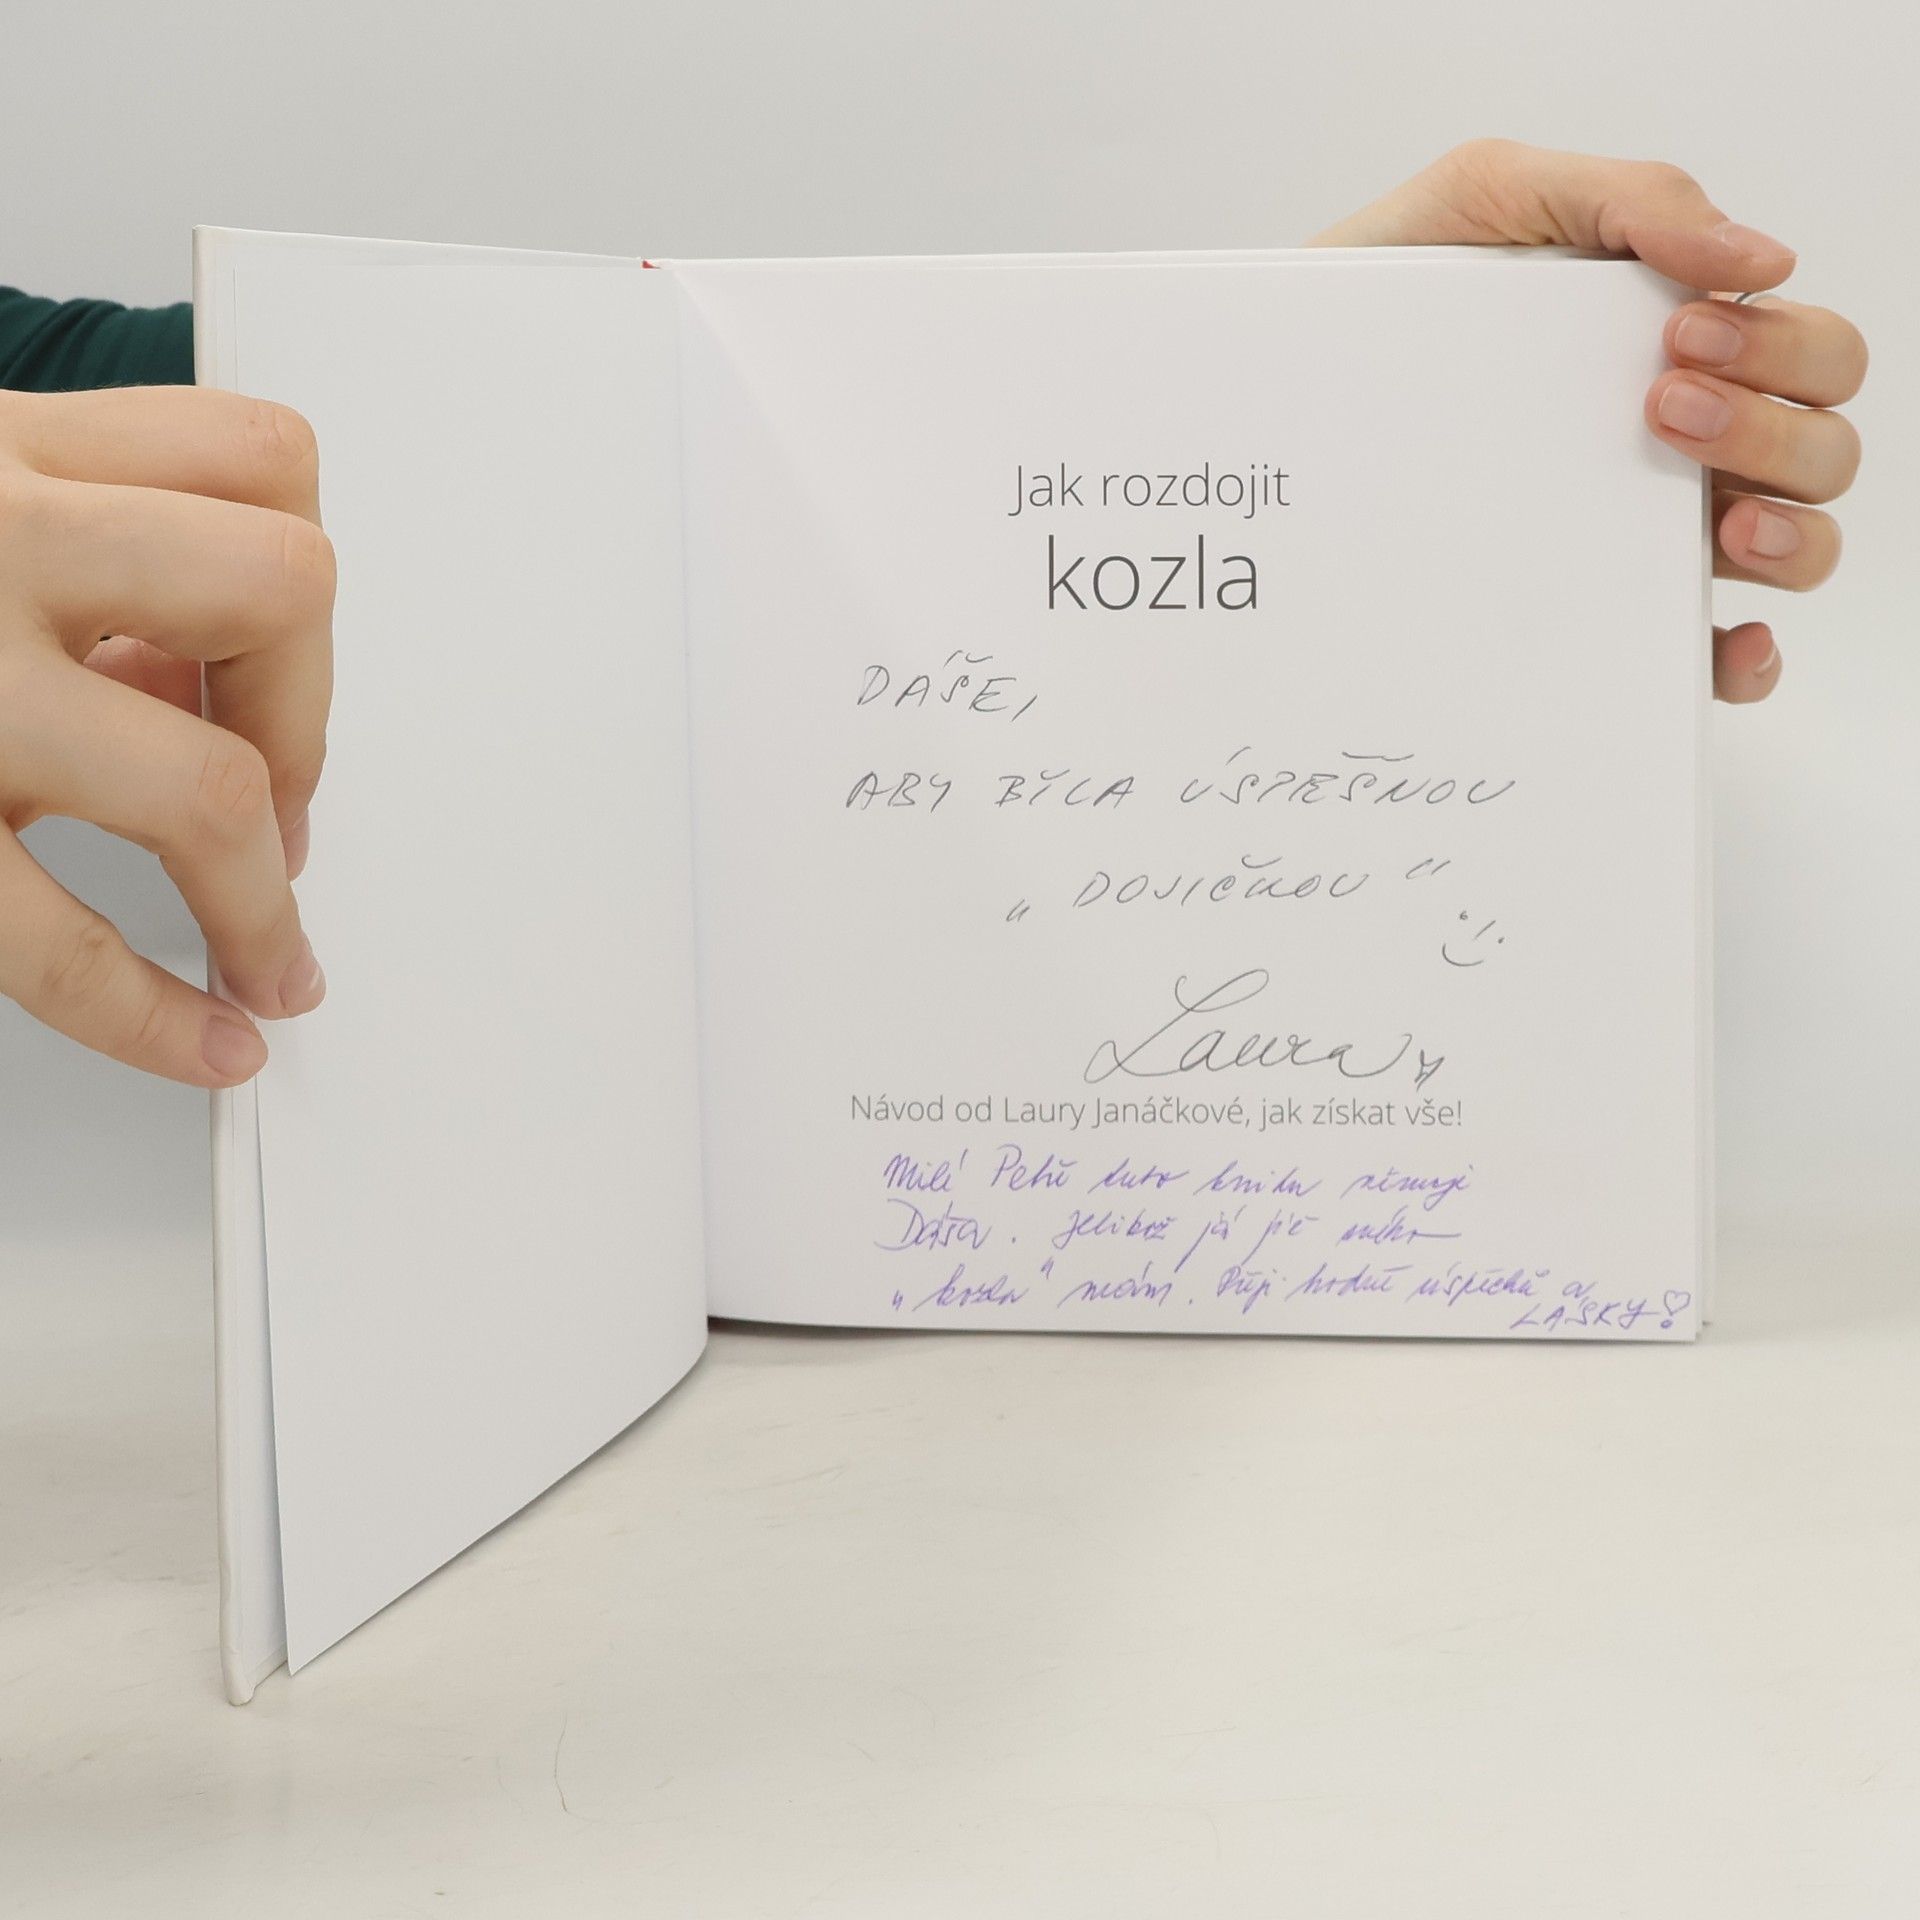 Jak rozdojit
kozla
DÁŠE,
ABY BYLA ÚSPĚŠNOU
„DOJIČKOU“
Laura
Návod od Laury Janáčkové, jak získat vše!
Milé Petře tuto knihu věnuje
Dáša. Jelikož já již svého
„kozla“ mám. Přeji hodně úspěchů a
LÁSKY!